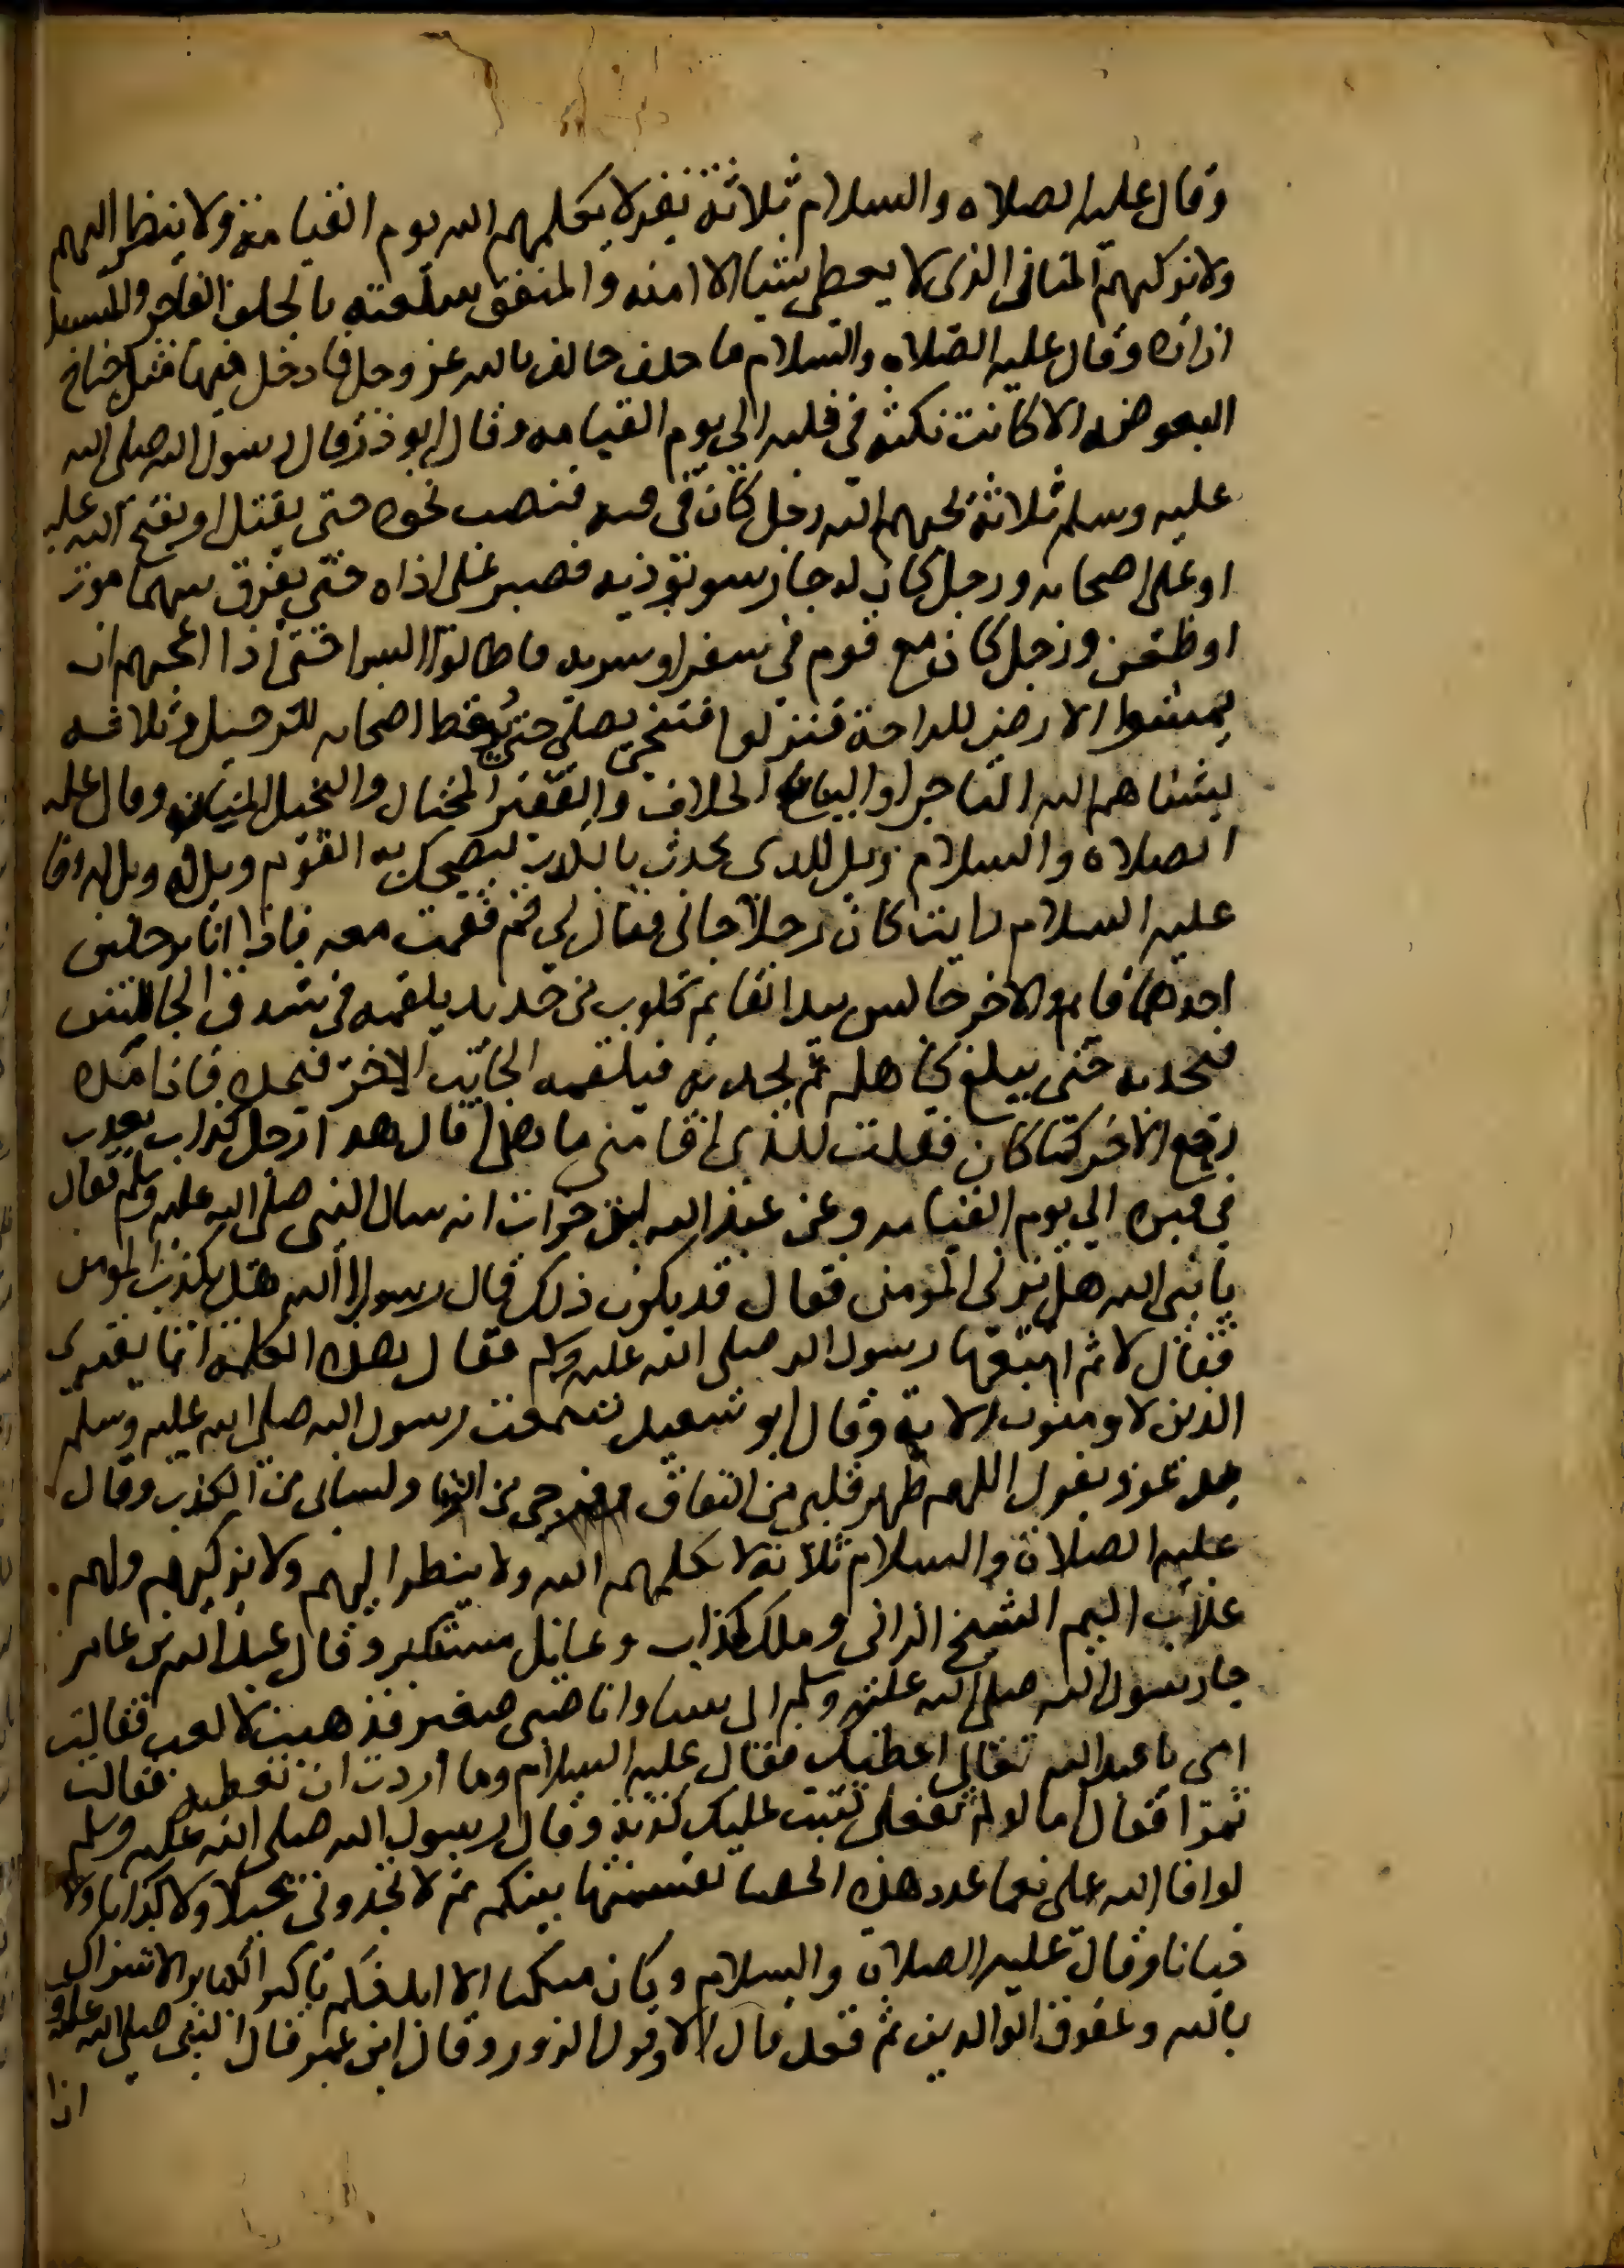 وقال عليه الصلاه والسلام ثلاثة نفر لا يكلمهم الله يوم القيامة ولا ينظر اليهم
ولا يزكيهم المنان الذى لا يعطى شيا الا منه والمنفق سلعته بالحلف الفاجر والمسبل
ازاره وقال عليه الصلاه والسلام ما حلف حالف بالله عز وجل فادخل فيها مثل جناح
البعوضه الا كانت نكته في قلبه الى يوم القيامه وقال ابو ذر قال رسول الله صلى الله
عليه وسلم ثلاثة يحبهم الله رجل كان في فيه فنصب نحره حتى يقتل او يفتح الله عليه
او على اصحابه ورجل كان له جار سو يؤذيه فصبر على اذاه حتى يفرق بينهما موت
او ظعن ورجل كان مع قوم في سفر او سريه فاطالوا السرا حتى اذا اعجبهم ان
يمسوا الارض للراحة فنزلوا فتنحى يصلى حتى يوقظ اصحابه للرحيل وثلاثه
يشناهم الله التاجر او البياع الحلاف والفقير المختال والبخيل المنان وقال عليه
الصلاه والسلام ويل للذى يحدث بالكذب ليضحك به القوم ويل له ويل له وقال
عليه السلام رايت كان رجلا جانى فقال لي قم فقمت معه فاذا انا برجلين
احدهما قايم والاخر جالس بيد القايم كلوب من حديد يلقمه في شدق الجالس
فيجذبه حتى يبلغ كاهله ثم يجذبه فيلقمه الجانب الاخر فيمده فاذا مده
رجع الاخر كما كان فقلت للذى اقامنى ما هذا قال هذا رجل كذاب يعذب
في قبره الي يوم القيامه وعن عبد الله ابن جراد انه سال النبى صلى الله عليه وسلم فقال
يا نبى الله هل يزنى المومن فقال قد يكون ذلك قال رسول الله هل يكذب المومن
فقال لا ثم اتبعها رسول الله صلى الله عليه وسلم فقال هذه الكلمه انما يفترى
الذين لا يومنون الاية وقال ابو سعيد سمعت رسول الله صلى الله عليه وسلم
يدعو ويقول اللهم طهر قلبى من النفاق وفرجى من الزنا ولسانى من الكذب وقال
عليه الصلاة والسلام ثلاثة لا يكلمهم الله ولا ينظر اليهم ولا يزكيهم ولهم
عذاب اليم الشيخ الزانى وملك كذاب وعايل مستكبر وقال عبد الله بن عامر
جا رسول الله صلى الله عليه وسلم الى بيتنا وانا صبى صغير فذهبت لالعب فقالت
امى يا عبد الله تعالى اعطيك فقال عليه السلام وما اردت ان تعطيه فقالت
تمرا فقال اما لو لم تفعلى لكتبت عليك كذبة وقال رسول الله صلى الله عليه وسلم
لو افا الله على نعما عدد هذه الحصا لقسمتها بينكم ثم لا تجدونى بخيلا ولا كذابا ولا
جبانا وقال عليه الصلاة والسلام وكان متكيا الا انبيكم باكبر الكباير الاشراك
بالله وعقوق الوالدين ثم قعد قال الا وقول الزور وقال ابن عمر قال النبى صلى الله عليه و
اذا